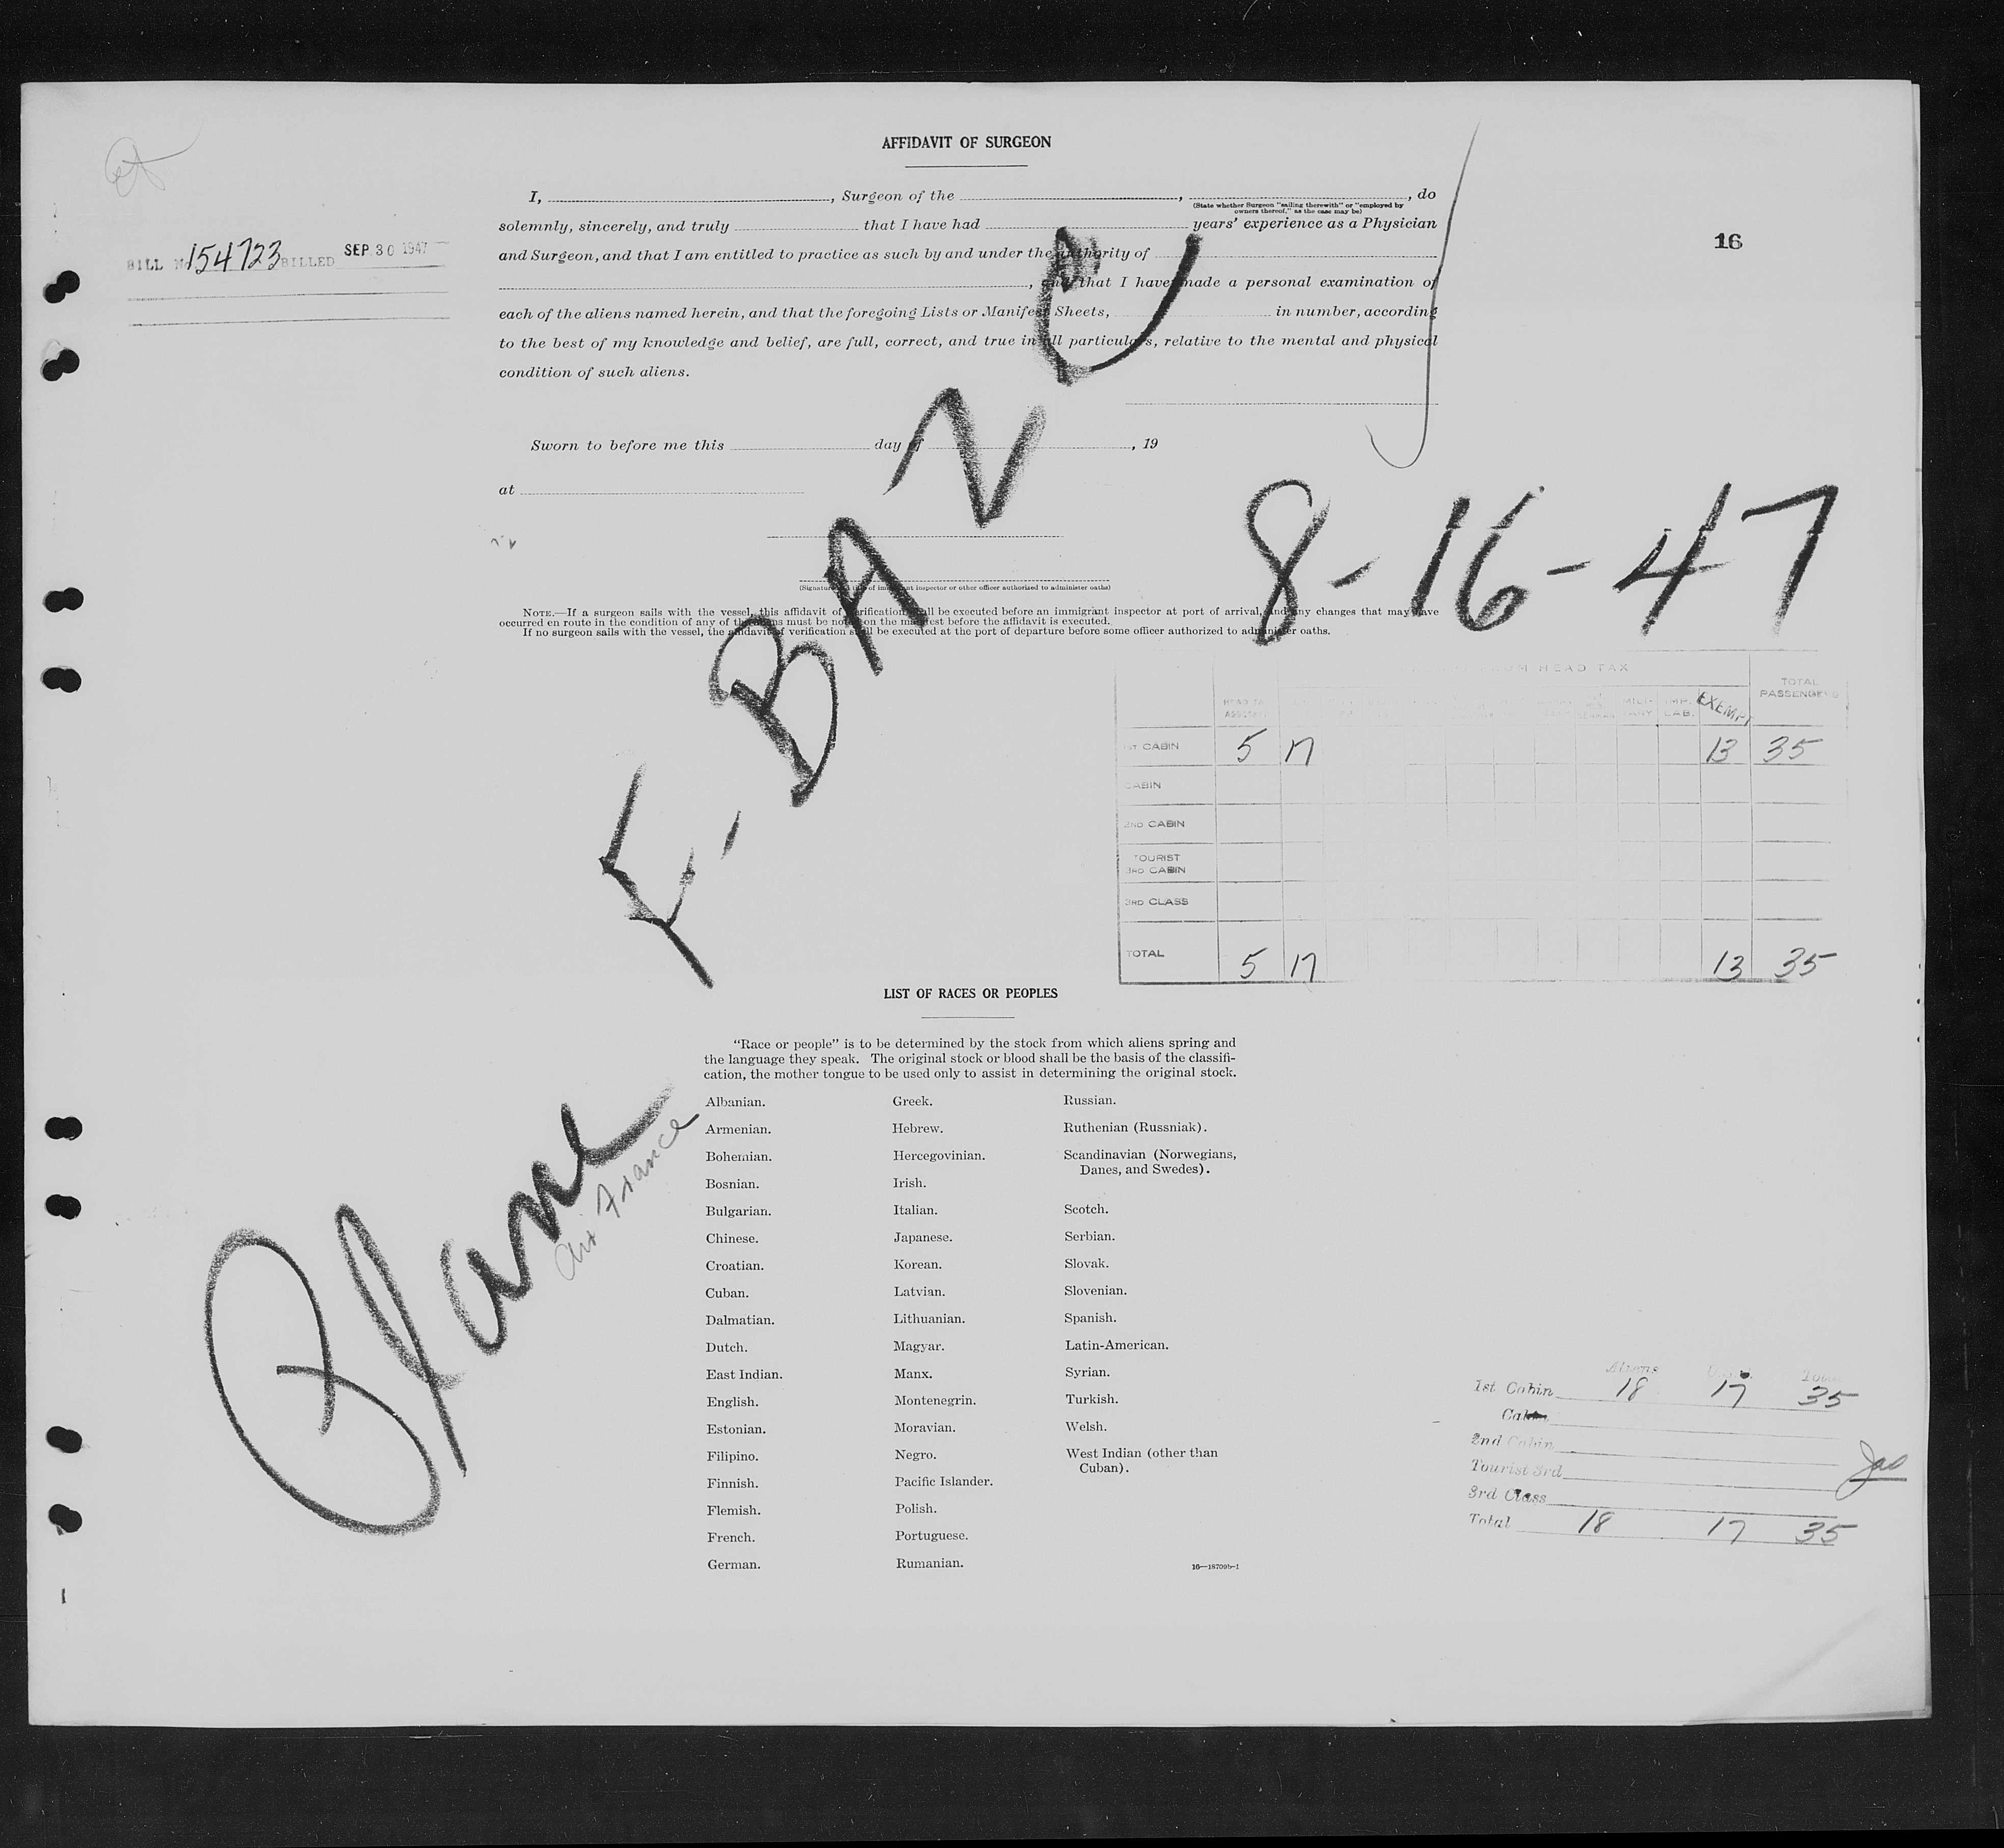 AFFIDAVIT OF SURGEON
I, , Surgeon of the , , do
(State whether Surgeon "sailing therewith" or "employed by
owners thereof," as the case may be)
solemnly, sincerely, and truly that I have had years' experience as a Physician
and Surgeon, and that I am entitled to practice as such by and under the authority of
, and that I have made a personal examination of
each of the aliens named herein, and that the foregoing Lists or Manifest Sheets, in number, according
to the best of my knowledge and belief, are full, correct, and true in all particulars, relative to the mental and physical
condition of such aliens.
BILL No 154723 BILLED SEP 30 1947
16
Sworn to before me this day of , 19
at
(Signature and title of immigrant inspector or other officer authorized to administer oaths)
NOTE.—If a surgeon sails with the vessel, this affidavit of verification shall be executed before an immigrant inspector at port of arrival, and any changes that may have
occurred en route in the condition of any of the aliens must be noted on the manifest before the affidavit is executed.
If no surgeon sails with the vessel, the affidavit of verification shall be executed at the port of departure before some officer authorized to administer oaths.
F-BAZC
8-16-47
HEAD TAX
TOTAL
PASSENGERS
MILI- IMP. EXEMPT
TARY LAB.
1ST CABIN 5 17 13 35
CABIN
2ND CABIN
TOURIST
3RD CABIN
3RD CLASS
TOTAL 5 17 13 35
Plane
Air France
LIST OF RACES OR PEOPLES
"Race or people" is to be determined by the stock from which aliens spring and
the language they speak. The original stock or blood shall be the basis of the classifi-
cation, the mother tongue to be used only to assist in determining the original stock.
Albanian. Greek. Russian.
Armenian. Hebrew. Ruthenian (Russniak).
Bohemian. Hercegovinian. Scandinavian (Norwegians,
Danes, and Swedes).
Bosnian. Irish.
Bulgarian. Italian. Scotch.
Chinese. Japanese. Serbian.
Croatian. Korean. Slovak.
Cuban. Latvian. Slovenian.
Dalmatian. Lithuanian. Spanish.
Dutch. Magyar. Latin-American.
East Indian. Manx. Syrian.
English. Montenegrin. Turkish.
Estonian. Moravian. Welsh.
Filipino. Negro. West Indian (other than
Cuban).
Finnish. Pacific Islander.
Flemish. Polish.
French. Portuguese.
German. Rumanian.
16—18709b-1
Aliens
1st Cabin 18 17 35
Cabin
2nd Cabin
Tourist 3rd
3rd Class
Total 18 17 35